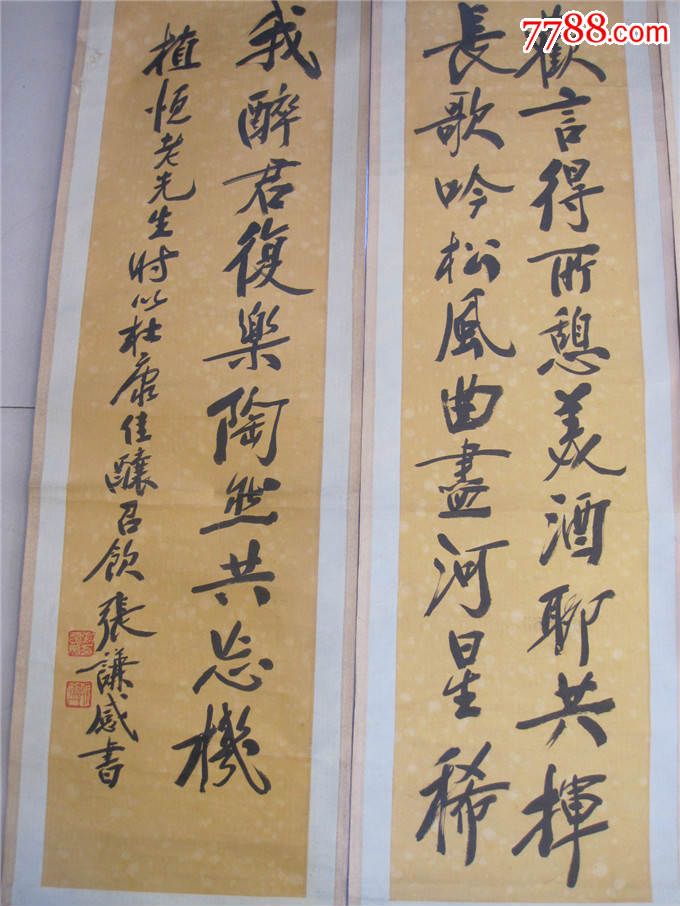 7788.com
歡言得所憩美酒聊共揮
長歌吟松風曲盡河星稀
我醉君復樂陶然共忘機
植恒老先生时以杜康佳釀召飲 張謙感書